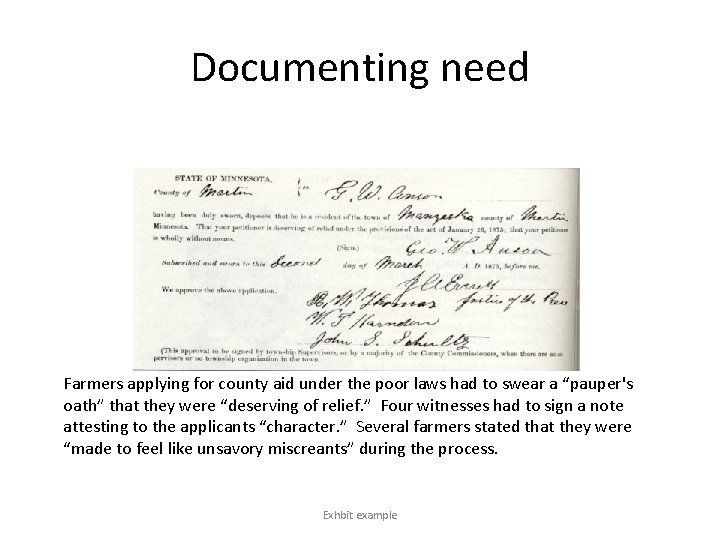 Documenting need
STATE OF MINNESOTA,
County of Martin } ss G. W. Anson
having been duly sworn, deposes that he is a resident of the town of Manyaska county of Martin
Minnesota. That your petitioner is deserving of relief under the provisions of the act of January 20, 1875; that your petitioner
is wholly without means.
(Sign.) Geo W Anson
Subscribed and sworn to this Second day of March A. D. 1875, before me.
Everett
We approve the above application. Justice of the Peace
Thomas
W. T.
John S. Schultz
(This approval to be signed by township Supervisors, or by a majority of the County Commissioners, when there are no su-
pervisors or no township organization in the town.)
Farmers applying for county aid under the poor laws had to swear a “pauper's
oath” that they were “deserving of relief. ” Four witnesses had to sign a note
attesting to the applicants “character. ” Several farmers stated that they were
“made to feel like unsavory miscreants” during the process.
Exhbit example